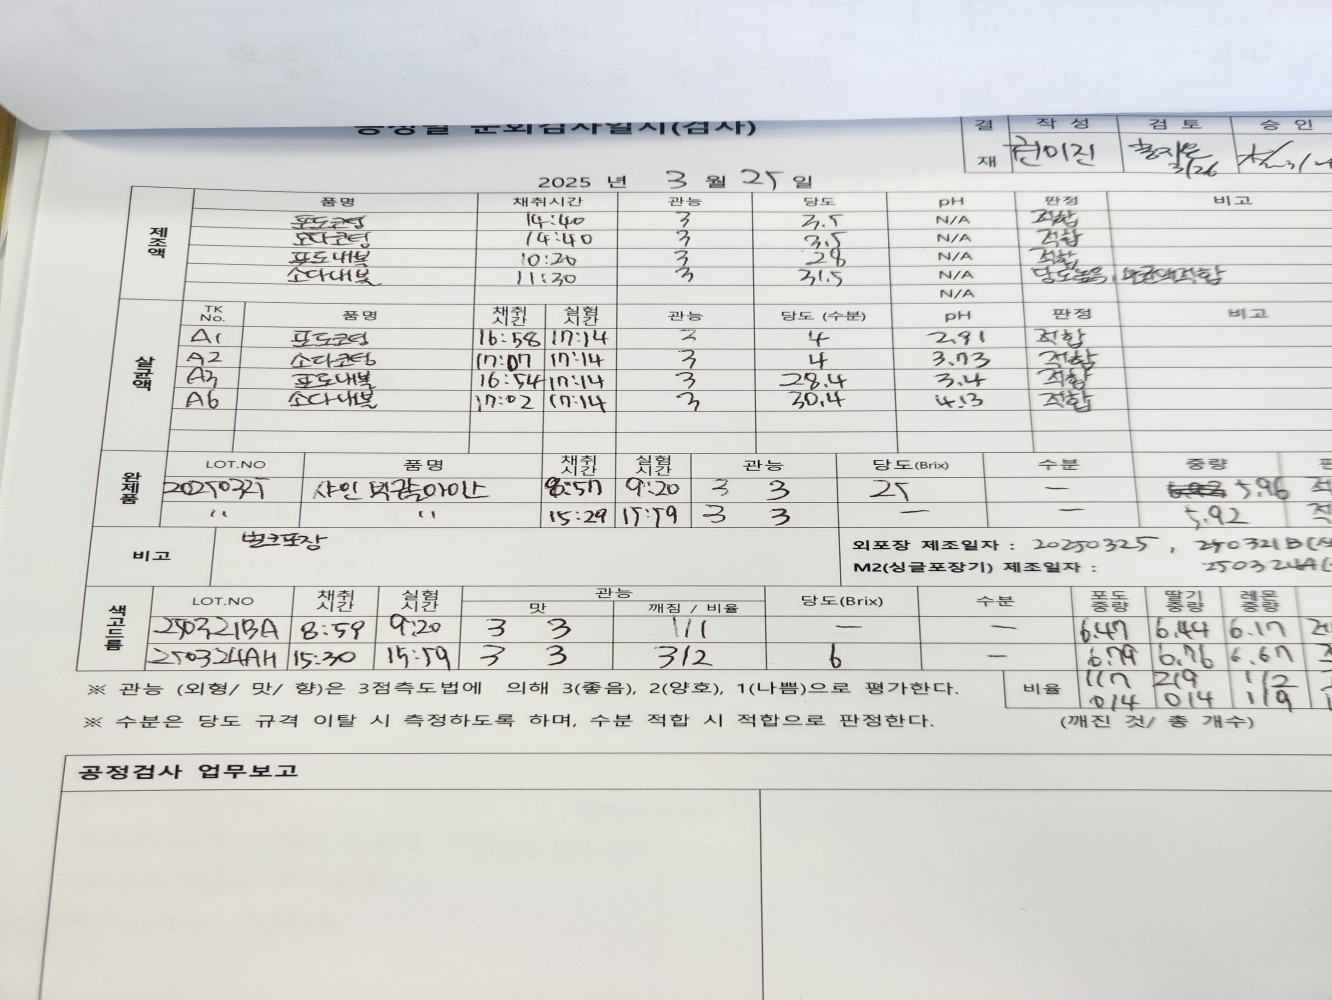 공정별 순회검사일지(검사)
결재 작성 검토 승인
권이진 3/26
2025 년 3 월 25 일
제조액 품명 채취시간 관능 당도 pH 판정 비고
포도코팅 14:40 3 3.5 N/A 적합
소다코팅 14:40 3 3.5 N/A 적합
포도내부 10:20 3 28 N/A 적합
소다내부 11:30 3 31.5 N/A 당도높음, 살균액적합
N/A
살균액 TK No. 품명 채취시간 실험시간 관능 당도 (수분) pH 판정 비고
A1 포도코팅 16:58 17:14 3 4 2.91 적합
A2 소다코팅 17:07 17:14 3 4 3.73 적합
A3 포도내부 16:54 17:14 3 28.4 3.4 적합
A6 소다내부 17:02 17:14 3 30.4 4.13 적합
완제품 LOT.NO 품명 채취시간 실험시간 관능 당도(Brix) 수분 중량
20250325 8:57 9:20 3 3 25 — 5.96 적
" " 15:29 15:59 3 3 — — 5.92 적
비고 벌크포장
외포장 제조일자 : 20250325, 250321B
M2(싱글포장기) 제조일자 : 250324A
색고드름 LOT.NO 채취시간 실험시간 관능 당도(Brix) 수분 포도중량 딸기중량 레몬중량
맛 깨짐 / 비율
250321BA 8:59 9:20 3 3 1/1 — — 6.47 6.44 6.17
250324AH 15:30 15:59 3 3 3/2 6 — 6.79 6.76 6.67
※ 관능 (외형/ 맛/ 향)은 3점측도법에 의해 3(좋음), 2(양호), 1(나쁨)으로 평가한다.
비율 1/7 2/9 1/2
0/4 0/4 1/9
※ 수분은 당도 규격 이탈 시 측정하도록 하며, 수분 적합 시 적합으로 판정한다.
(깨진 것/ 총 개수)
공정검사 업무보고